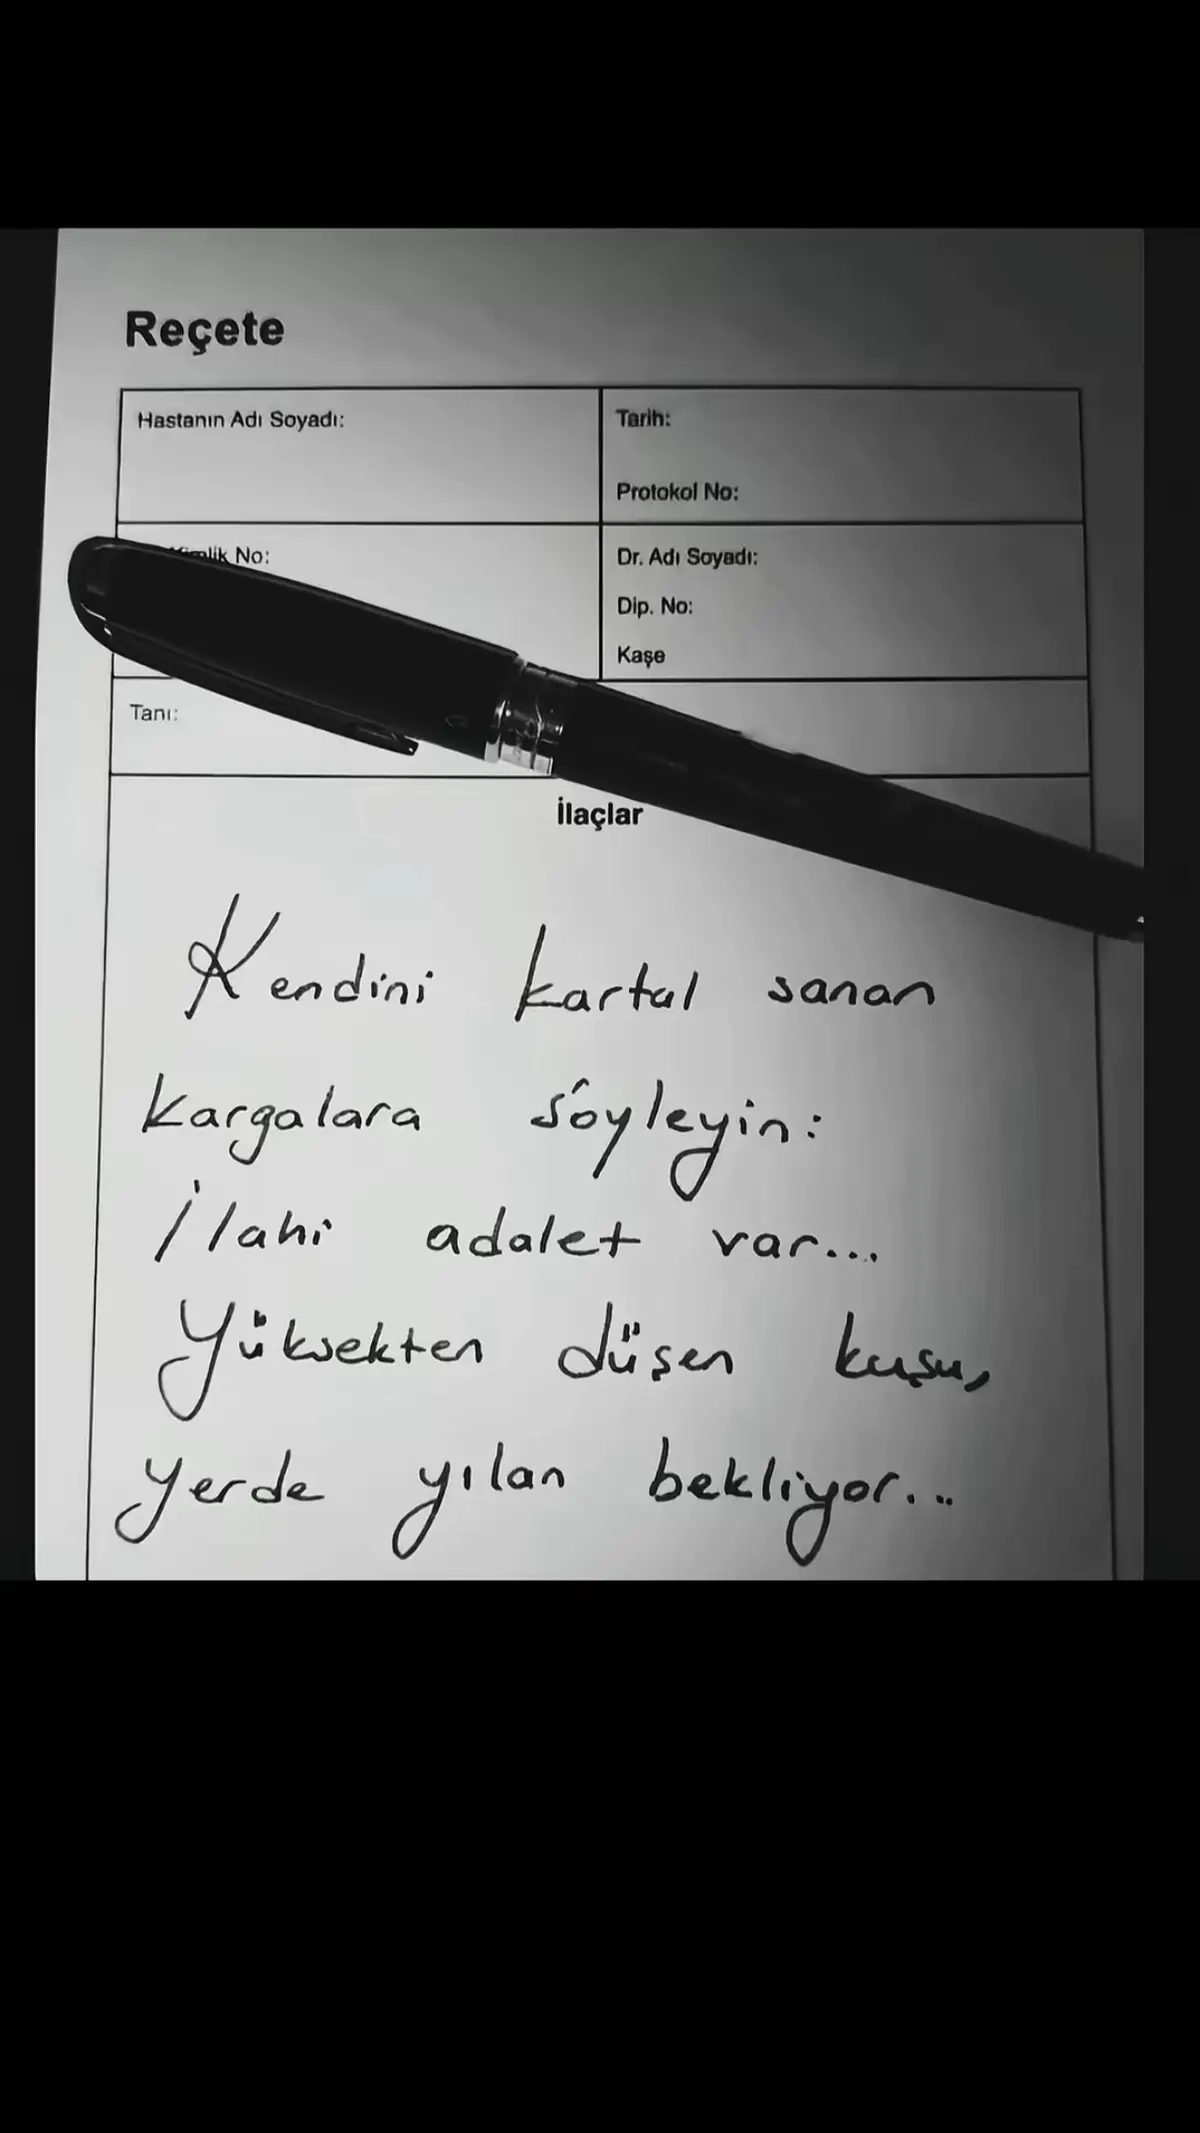 Reçete
Hastanın Adı Soyadı:
Tarih:
Protokol No:
No:
Dr. Adı Soyadı:
Dip. No:
Kaşe
Tanı:
İlaçlar
Kendini kartal sanan
kargalara söyleyin:
İlahi adalet var...
Yüksekten düşen kuşu,
yerde yılan bekliyor...